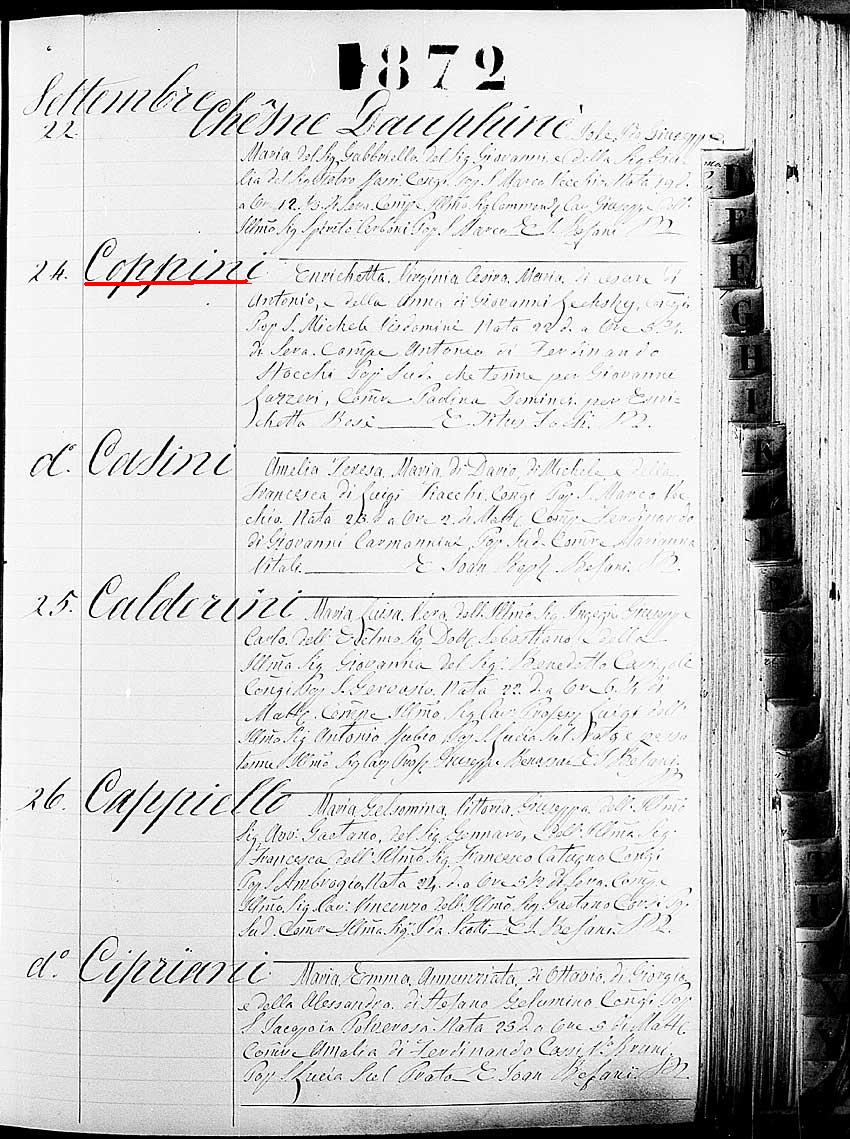 1872
Settembre
22. Chêsne Dauphinè Iole, Ba Giuseppe,
Maria del Sig Gabbriello del Sig Giovanni e della Sig Giu-
lia del Sig Pietro Congi Pop S Marco Vecchio Nata 19 d.
a Ore 12. ½ di Sera. Compe Illmo Sig Commend Cav Giuseppe dell'
Illmo Sig Spirito Cerboni Pop S. Marco E. S. Stefani
24. Coppini Enrichetta, Virginia Cesira, Maria, di Cesare di
Antonio, e della Anna di Giovanni Congi
Pop S. Michele Visdomini Nata 22 d. a Ore
di Sera. Compe Antonio di Ferdinando
Stocchi Pop Sud. che tenne per Giovanni
Lazzeri, Comre Paolina Dominici per Enri-
chetta Rosi E. Titus Sachi.
do. Casini Amelia Teresa, Maria di Dario, di Michele e della
Francesca di Luigi Congi Pop S. Marco Vec
chio. Nata 23 d. a Ore 2. di Matt. Compe Ferdinando
di Giovanni Carmannini, Pop Sud. Comre Marianna
Vitali. E Joan Steph. Stefani.
25. Calderini Maria Luisa, Vera, dell Illmo Sig Giuseppe
Carlo, dell' Eccelmo Sig Dott. Sebastiano, e della
Illma Sig Giovanna del Sig. Benedetto
Congi Pop S. Gervasio, Nata 22. d. a Ore 6. ½ di
Matt. Compe Illmo Sig. Cav. Profess Luigi dell
Illmo Sig Antonio Pop S. Lucia Sul Prato
Illmo Sig Cav Prof. Giuseppe E. S. Stefani.
26. Cappiello Maria, Gelsomina, Vittoria, Giuseppa, dell. Illmo
Sig. Avv. Gaetano, del Sig. Gennaro, e dell. Illma Sig.
Francesca dell' Illmo Sig Francesco Catugno Congi
Pop S. Ambrogio, Nata 24. d. a Ore 3 ½ di Sera. Compe
Illmo. Sig. Cav: Vincenzo dell. Illmo, Sig. Gaetano Corsi Po.
Sud. Comre Illma Sig. Ida Scotti E. S. Stefani.
do. Cipriani Maria, Emma, Annunziata, di Ottavio, di Giorgio
e della Alessandra, di Stefano Gelsumino Congi Pop
S. Jacopo in Polverosa. Nata 23 d. a Ore 5 di Matt.
Comre Amalia di Ferdinando
Pop S. Lucia Sul Prato E Joan Stefani.
D
E
F
G
H
I
K
T
U